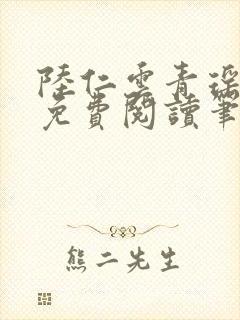 陸仁雲青瑶
免費閱讀筆
熊二先生